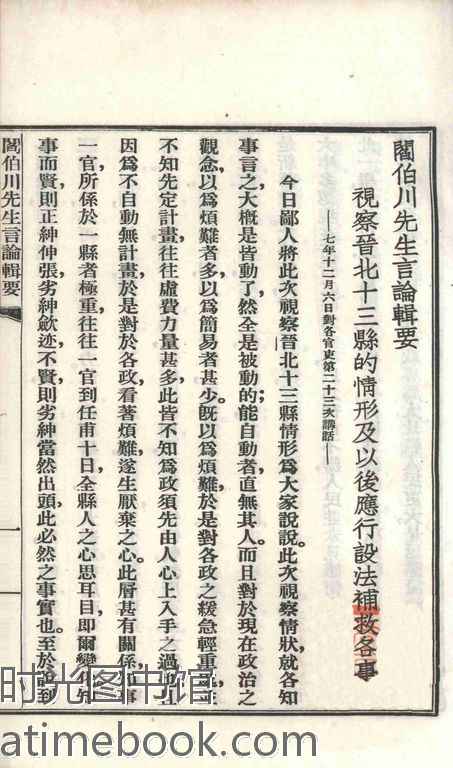 閻伯川先生言論輯要
視察晉北十三縣的情形及以後應行設法補救各事
——七年十二月六日對各官吏第二十三次講話——
今日鄙人將此次視察晉北十三縣情形爲大家說說。此次視察情狀，就各知
事言之，大概是皆動了，然全是被動的；能自動者，直無其人。而且對於現在政治之
觀念，以爲煩難者多，以爲簡易者甚少。旣以爲煩難，於是對各政之緩急輕重，
不知先定計畫，往往虛費力量甚多，此皆不知爲政須先由人心上入手之過
因爲不自動，無計畫，於是對於各政看著煩難，遂生厭棄之心，此層甚有關係，
一官所係於一縣者極重，往往一官到任甫十日，全縣人之心思耳目，即爾變
事而賢，則正紳伸張，劣紳歛迹，不賢，則劣紳當然出頭，此必然之事實也。至於
閻伯川先生言論輯要
一
时光图书馆
atimebook.com